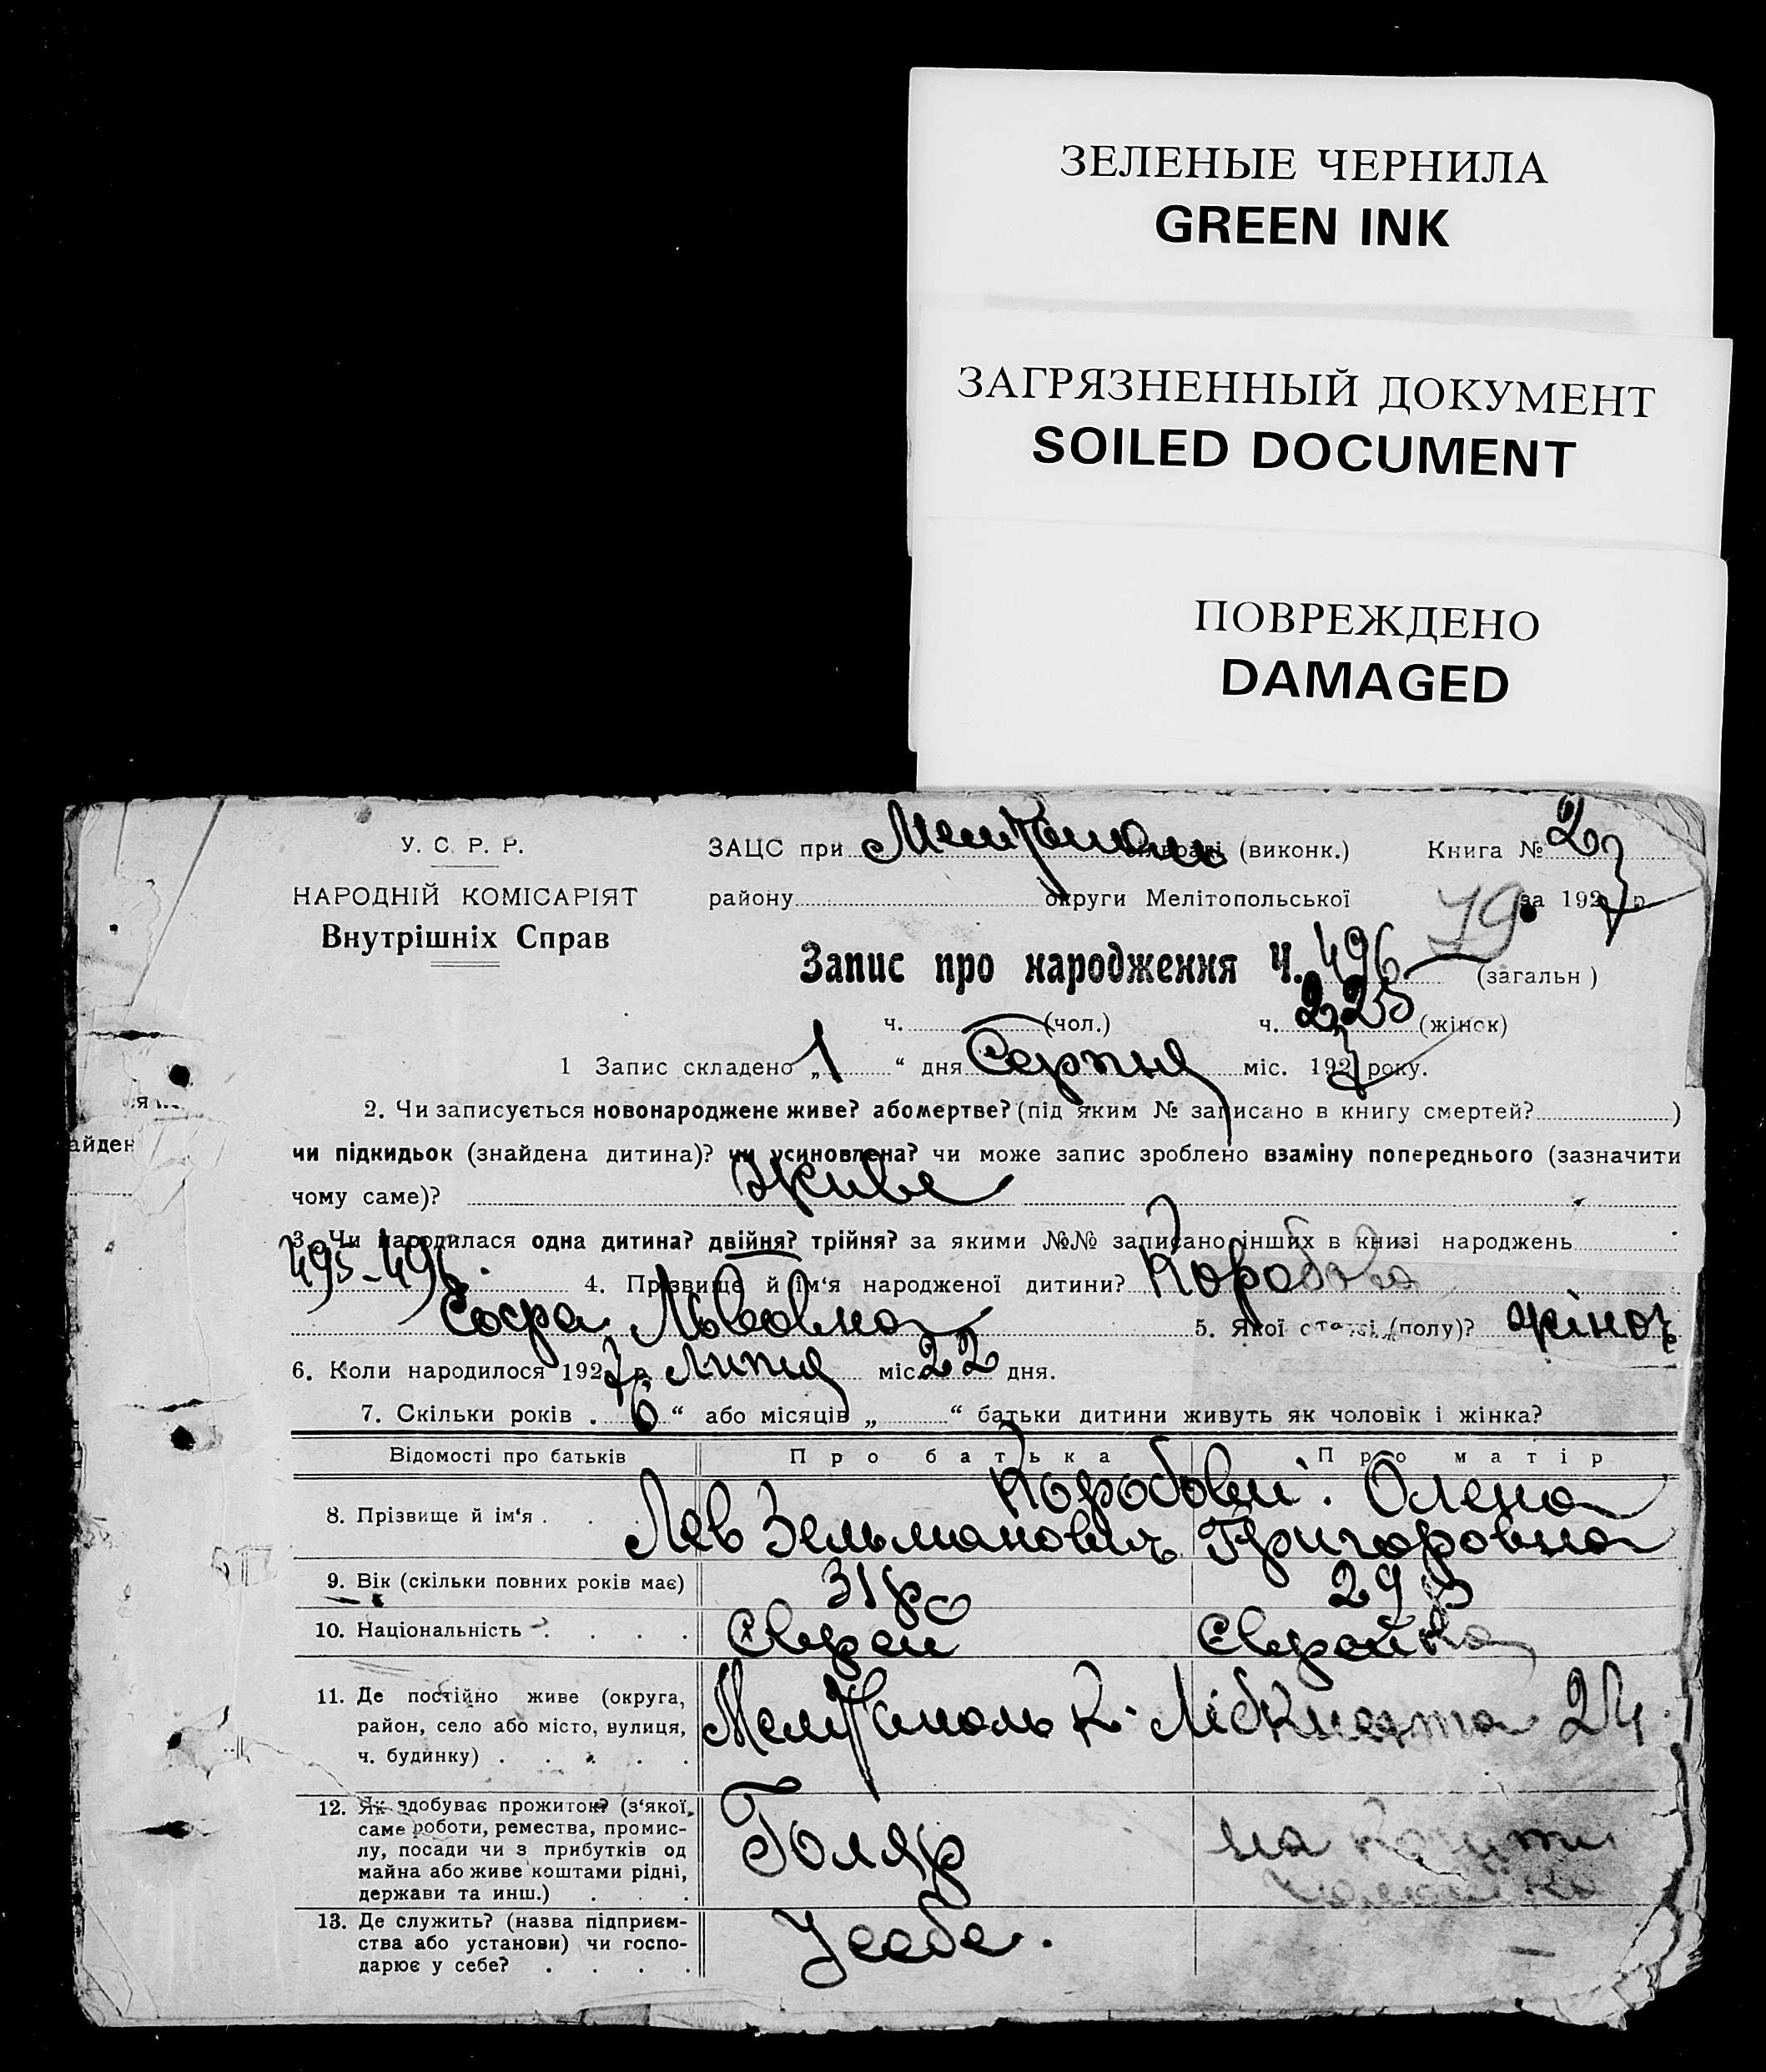 ЗЕЛЕНЫЕ ЧЕРНИЛА
GREEN INK
ЗАГРЯЗНЕННЫЙ ДОКУМЕНТ
SOILED DOCUMENT
ПОВРЕЖДЕНО
DAMAGED
У. С. Р. Р.
НАРОДНІЙ КОМІСАРІЯТ
Внутрішніх Справ
ЗАЦС при Мелітополь (виконк.) Книга № 2
району округи Мелітопольської за 1927 р.
79
Запис про народження Ч. 496 (загальн)
ч. (чол.) ч. 225 (жінок)
1 Запис складено „1“ дня Серпня міс. 1927 року.
2. Чи записується новонароджене живе? або мертве? (під яким № записано в книгу смертей? )
чи підкидьок (знайдена дитина)? чи усиновлена? чи може запис зроблено взаміну попереднього (зазначити
чому саме)? живе
3. Чи народилася одна дитина? двійня? трійня? за якими №№ записано інших в книзі народжень
495-496. 4. Прізвище й ім‘я народженої дитини? Коробова
Софа Львовна 5. Якої статі (полу)? жіноч
6. Коли народилося 1927 р. липня міс. 22 дня.
7. Скільки років „6“ або місяців „ “ батьки дитини живуть як чоловік і жінка?
Відомості про батьків Про батька Про матір
8. Прізвище й ім‘я . Коробови. Олена
Лев Зельманович Григоровна
9. Вік (скільки повних років має) 31 р 29 р
10. Національність . . . . Єврей Єврейка
11. Де постійно живе (округа,
район, село або місто, вулиця,
ч. будинку) . . . . . Мелітополь К. Лібкнехта 24
12. Як здобуває прожиток? (з‘якої
саме роботи, ремества, промис-
лу, посади чи з прибутків од
майна або живе коштами рідні,
держави та инш.) . . . Голяр на кошти
чоловіка
13. Де служить? (назва підприєм-
ства або установи) чи госпо-
дарює у себе? . . . . У себе.
айден